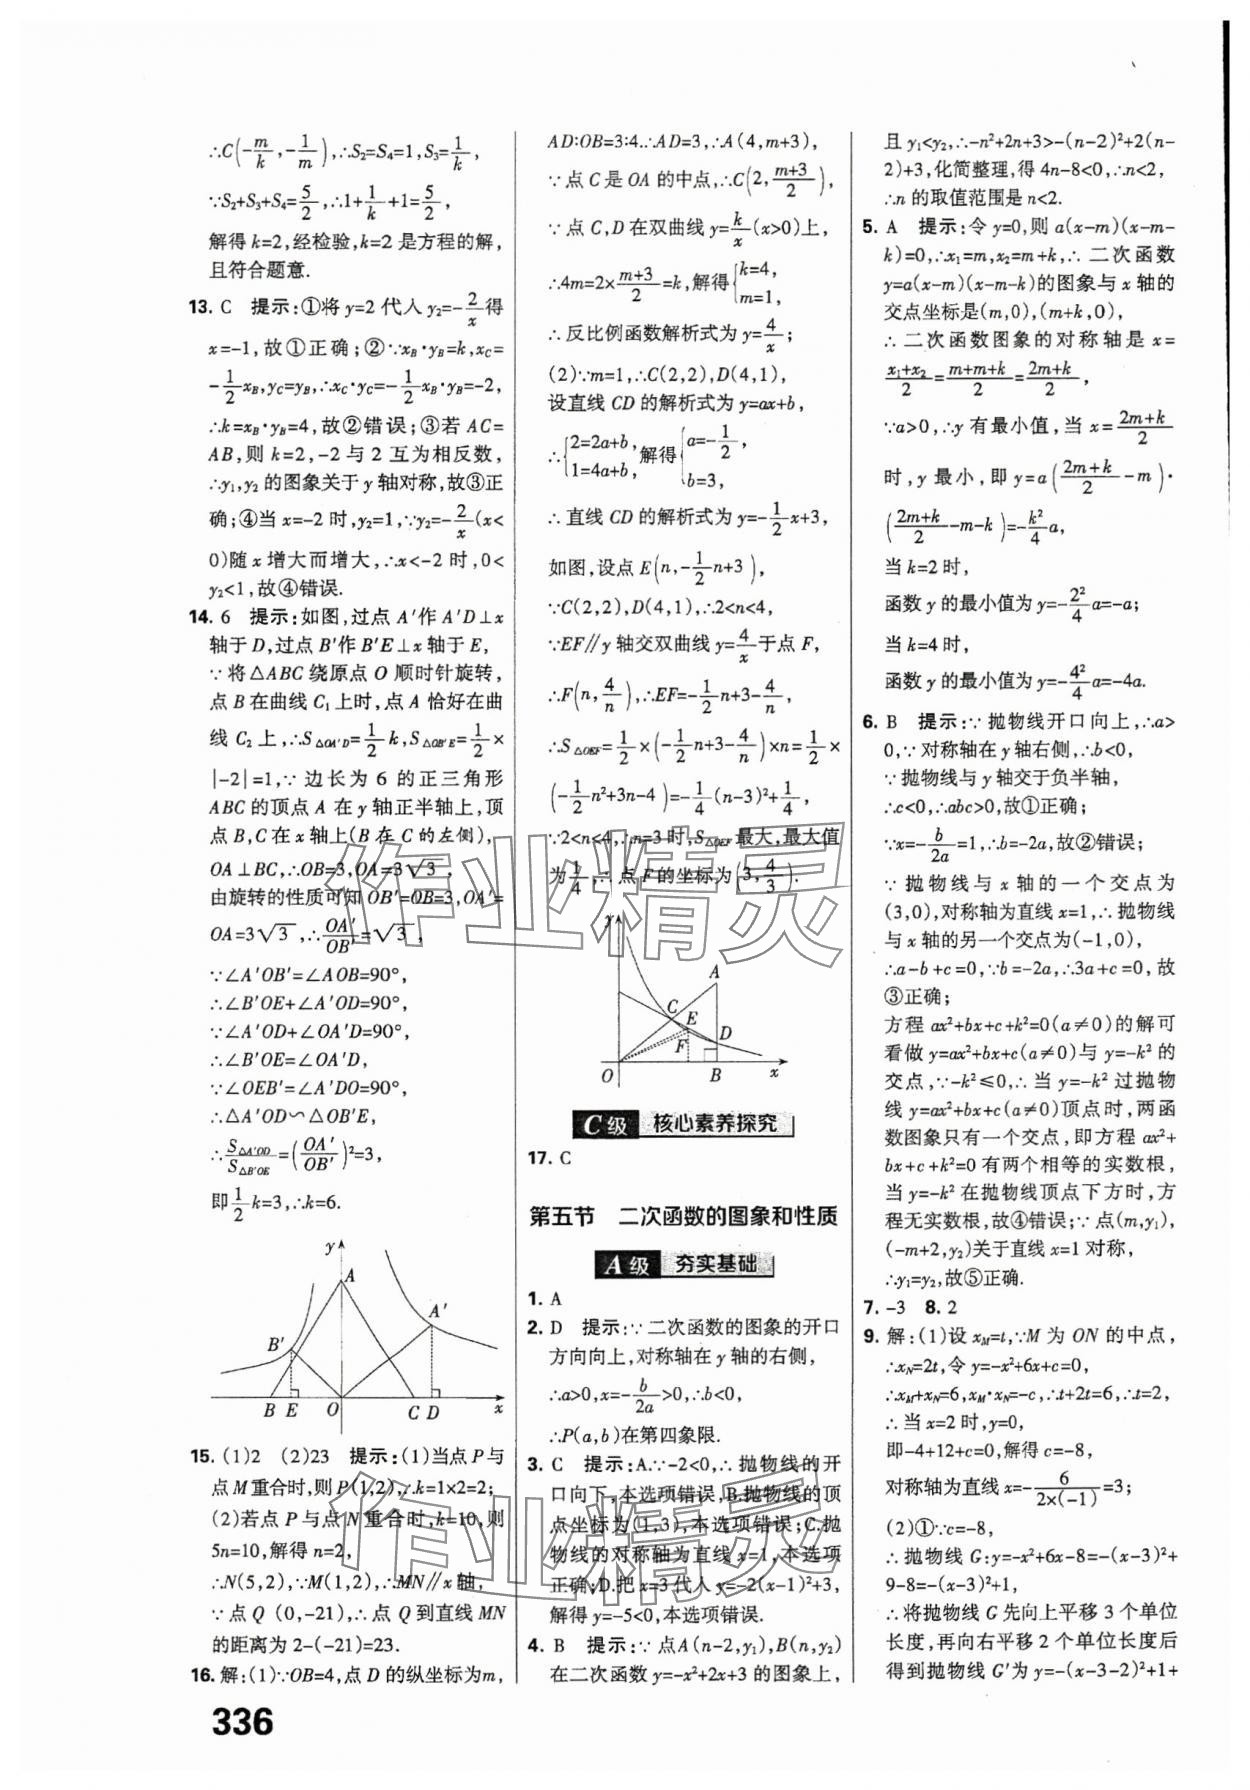 ∴C(-m/k,-1/m),∴S₂=S₄=1,S₃=1/k,
∵S₂+S₃+S₄=5/2,∴1+1/k+1=5/2,
解得k=2,经检验,k=2是方程的解,
且符合题意.
13. C 提示:①将y=2代人y₂=-2/x得
x=-1,故①正确;②∵x_B·y_B=k,x_C=
-1/2x_B,y_C=y_B,∴x_C·y_C=-1/2x_B·y_B=-2,
∴k=x_B·y_B=4,故②错误;③若AC=
AB,则k=2,-2与2互为相反数,
∴y₁,y₂的图象关于y轴对称,故③正
确;④当x=-2时,y₂=1,∵y₂=-2/x(x<
0)随x增大而增大,∴x<-2时,0<
y₂<1,故④错误.
14. 6 提示:如图,过点A′作A′D⊥x
轴于D,过点B′作B′E⊥x轴于E,
∵将△ABC绕原点O顺时针旋转,
点B在曲线C₁上时,点A恰好在曲
线C₂上,∴S△OA′D=1/2k,S△OB′E=1/2×
|-2|=1,∵边长为6的正三角形
ABC的顶点A在y轴正半轴上,顶
点B,C在x轴上(B在C的左侧),
OA⊥BC,∴OB=3,OA=3√3,
由旋转的性质可知OB′=OB=3,OA′=
OA=3√3,∴OA′/OB′=√3,
∵∠A′OB′=∠AOB=90°,
∴∠B′OE+∠A′OD=90°,
∵∠A′OD+∠OA′D=90°,
∴∠B′OE=∠OA′D,
∵∠OEB′=∠A′DO=90°,
∴△A′OD∽△OB′E,
∴S△A′OD/S△B′OE=(OA′/OB′)²=3,
即1/2k=3,∴k=6.
y
A
A′
B′
B E O C D x
15. (1)2 (2)23 提示:(1)当点P与
点M重合时,则P(1,2),∴k=1×2=2;
(2)若点P与点N重合时,k=10,则
5n=10,解得n=2,
∴N(5,2),∵M(1,2),∴MN∥x轴,
∵点Q(0,-21),∴点Q到直线MN
的距离为2-(-21)=23.
16. 解:(1)∵OB=4,点D的纵坐标为m,
336
AD:OB=3:4.∴AD=3,∴A(4,m+3),
∵点C是OA的中点,∴C(2,(m+3)/2),
∵点C,D在双曲线y=k/x(x>0)上,
∴4m=2×(m+3)/2=k,解得{k=4,
m=1,
∴反比例函数解析式为y=4/x;
(2)∵m=1,∴C(2,2),D(4,1),
设直线CD的解析式为y=ax+b,
∴{2=2a+b, 1=4a+b, 解得{a=-1/2, b=3,
∴直线CD的解析式为y=-1/2x+3,
如图,设点E(n,-1/2n+3),
∵C(2,2),D(4,1),∴2<n<4,
∵EF∥y轴交双曲线y=4/x于点F,
∴F(n,4/n),∴EF=-1/2n+3-4/n,
∴S△OEF=1/2×(-1/2n+3-4/n)×n=1/2×
(-1/2n²+3n-4)=-1/4(n-3)²+1/4,
∵2<n<4,∴n=3时,S△OEF最大,最大值
为1/4,∴点F的坐标为(3,4/3).
y
A
C
E
D
F
O B x
C级 核心素养探究
17. C
第五节 二次函数的图象和性质
A级 夯实基础
1. A
2. D 提示:∵二次函数的图象的开口
方向向上,对称轴在y轴的右侧,
∴a>0,x=-b/2a>0,∴b<0,
∴P(a,b)在第四象限.
3. C 提示:A.∵-2<0,∴抛物线的开
口向下,本选项错误,B.抛物线的顶
点坐标为(1,3),本选项错误;C.抛
物线的对称轴为直线x=1,本选项
正确;D.把x=3代人y=-2(x-1)²+3,
解得y=-5<0,本选项错误.
4. B 提示:∵点A(n-2,y₁),B(n,y₂)
在二次函数y=-x²+2x+3的图象上,
且y₁<y₂,∴-n²+2n+3>-(n-2)²+2(n-
2)+3,化简整理,得4n-8<0,∴n<2,
∴n的取值范围是n<2.
5. A 提示:令y=0,则a(x-m)(x-m-
k)=0,∴x₁=m,x₂=m+k,∴二次函数
y=a(x-m)(x-m-k)的图象与x轴的
交点坐标是(m,0),(m+k,0),
∴二次函数图象的对称轴是x=
(x₁+x₂)/2=(m+m+k)/2=(2m+k)/2,
∵a>0,∴y有最小值,当x=(2m+k)/2
时,y最小,即y=a((2m+k)/2-m)·
((2m+k)/2-m-k)=-k²/4a,
当k=2时,
函数y的最小值为y=-2²/4a=-a;
当k=4时,
函数y的最小值为y=-4²/4a=-4a.
6. B 提示:∵抛物线开口向上,∴a>
0,∵对称轴在y轴右侧,∴b<0,
∵抛物线与y轴交于负半轴,
∴c<0,∴abc>0,故①正确;
∵x=-b/2a=1,∴b=-2a,故②错误;
∵抛物线与x轴的一个交点为
(3,0),对称轴为直线x=1,∴抛物线
与x轴的另一个交点为(-1,0),
∴a-b+c=0,∵b=-2a,∴3a+c=0,故
③正确;
方程ax²+bx+c+k²=0(a≠0)的解可
看做y=ax²+bx+c(a≠0)与y=-k²的
交点,∵-k²≤0,∴当y=-k²过抛物
线y=ax²+bx+c(a≠0)顶点时,两函
数图象只有一个交点,即方程ax²+
bx+c+k²=0有两个相等的实数根,
当y=-k²在抛物线顶点下方时,方
程无实数根,故④错误;∵点(m,y₁),
(-m+2,y₂)关于直线x=1对称,
∴y₁=y₂,故⑤正确.
7. -3 8. 2
9. 解:(1)设x_M=t,∵M为ON的中点,
∴x_N=2t,令y=-x²+6x+c=0,
∴x_M+x_N=6,x_M·x_N=-c,∴t+2t=6,∴t=2,
∴当x=2时,y=0,
即-4+12+c=0,解得c=-8,
对称轴为直线x=-6/(2×(-1))=3;
(2)①∵c=-8,
∴抛物线G:y=-x²+6x-8=-(x-3)²+
9-8=-(x-3)²+1,
∴将抛物线G先向上平移3个单位
长度,再向右平移2个单位长度后
得到抛物线G′为y=-(x-3-2)²+1+
作业精灵
作业精灵